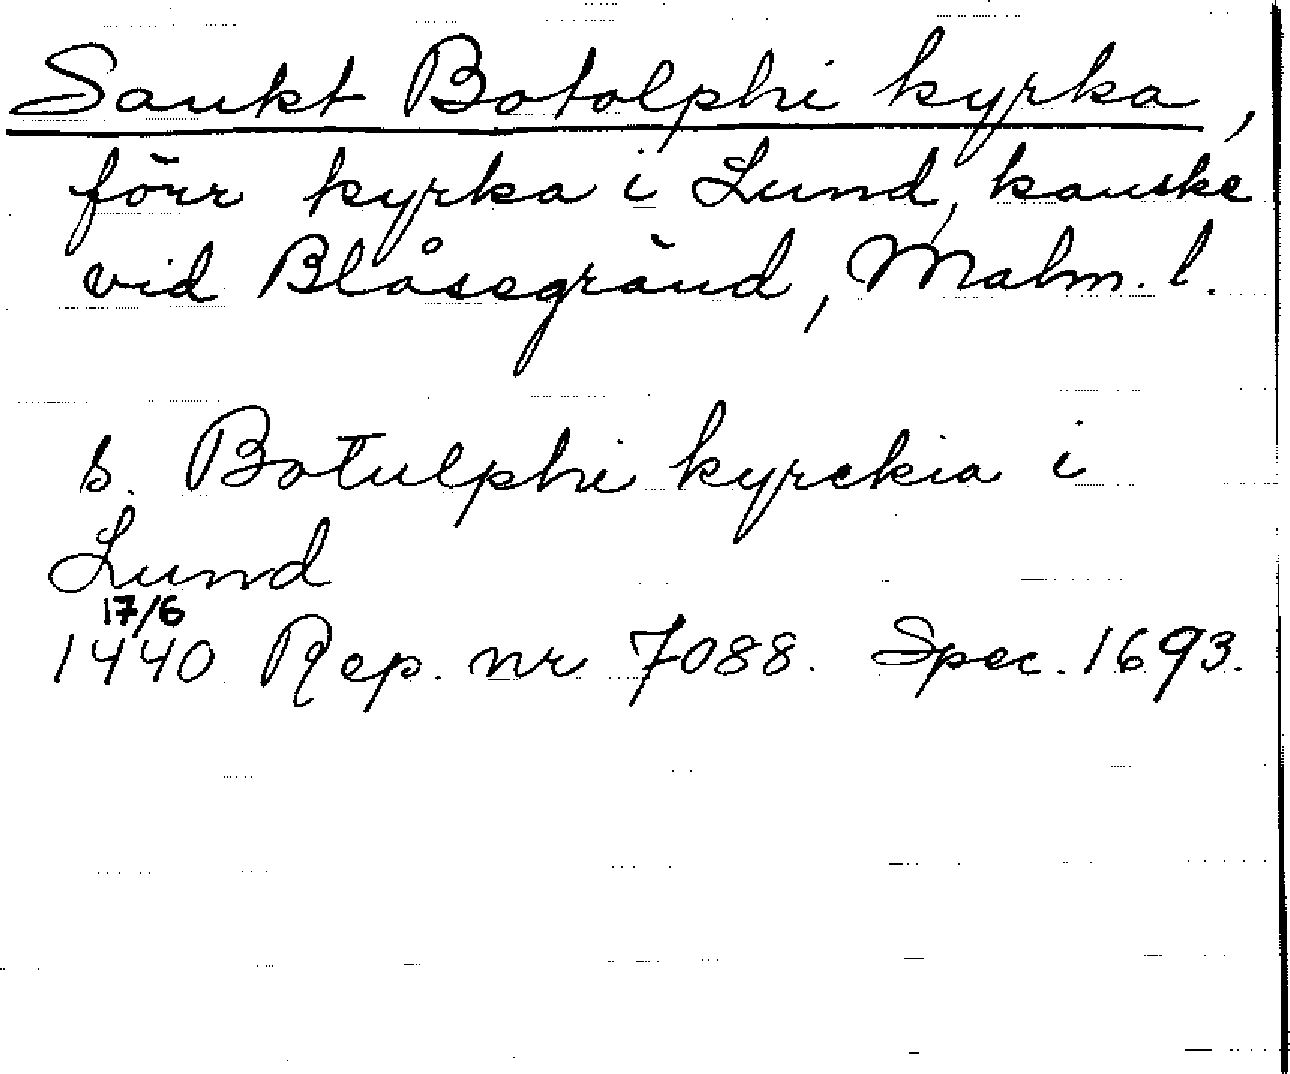 Sankt Botolphi kyrka,
förr kyrka i Lund, kanske
vid Blåsegränd, Malm. l.
S. Botulphi kyrckia i
Lund
17/6
1440 Rep. nr 7088. Spec. 1693.